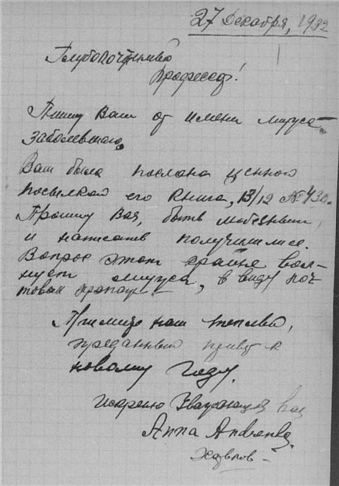 27 Декабря, 1932
Глубокочтимый
Профессор!
Пишу Вам от имени мужа
заболевшего.
Вам была послана ценной
посылкой его книга, 13/12 № 430.
Прошу Вас, быть любезным
и написать получили ли ее.
Вопрос этот крайне вол-
нует мужа, в виду поч-
товых пропаж.
Примите наш теплый,
преданный привет к
новому Году.
Искренно Уважающая Вас
Анна